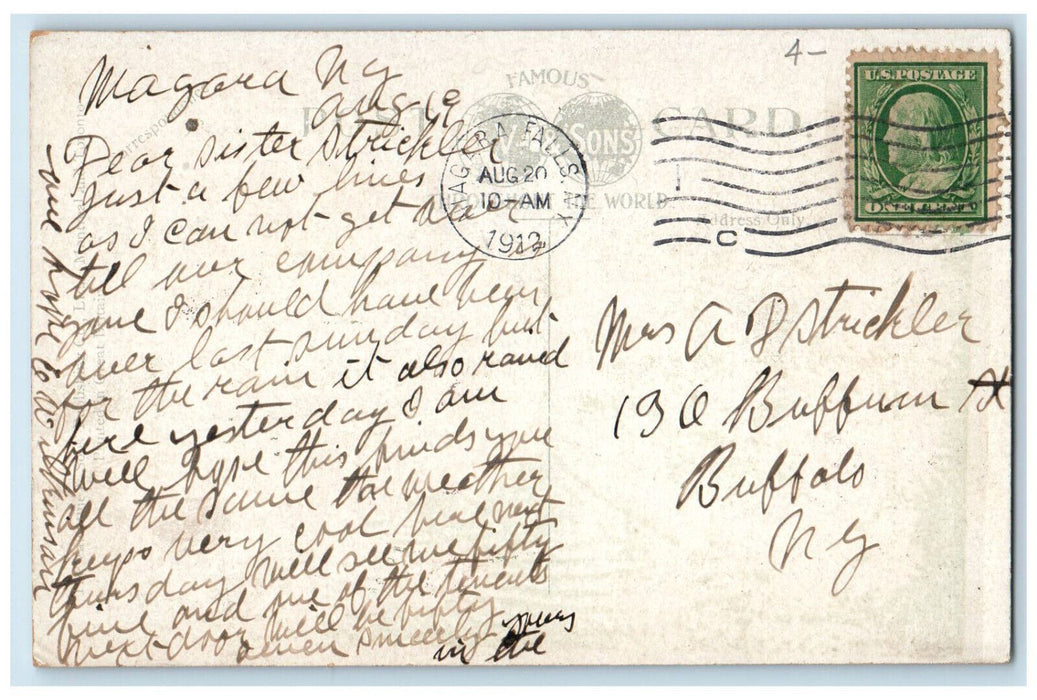 Niagara Ny
Aug 19
Dear sister Strickler
just a few lines
as I can not get over
till our company
gone I should have been
over last sunday but
for the rain it also rained
here yesterday I am
well hope this finds you
all the same the weather
keeps very cool here next
thursday will see me fifty
five and one of the tenents
next door will be fifty
seven sincerely yours
in the
one hope
4-
FAMOUS
POST CARD
& SONS
THE WORLD
Address Only
NIAGARA FALLS, N.Y.
AUG 20
10-AM
1912
C
U.S. POSTAGE
Mrs A D Strickler
190 Buffum St
Buffalo
Ny